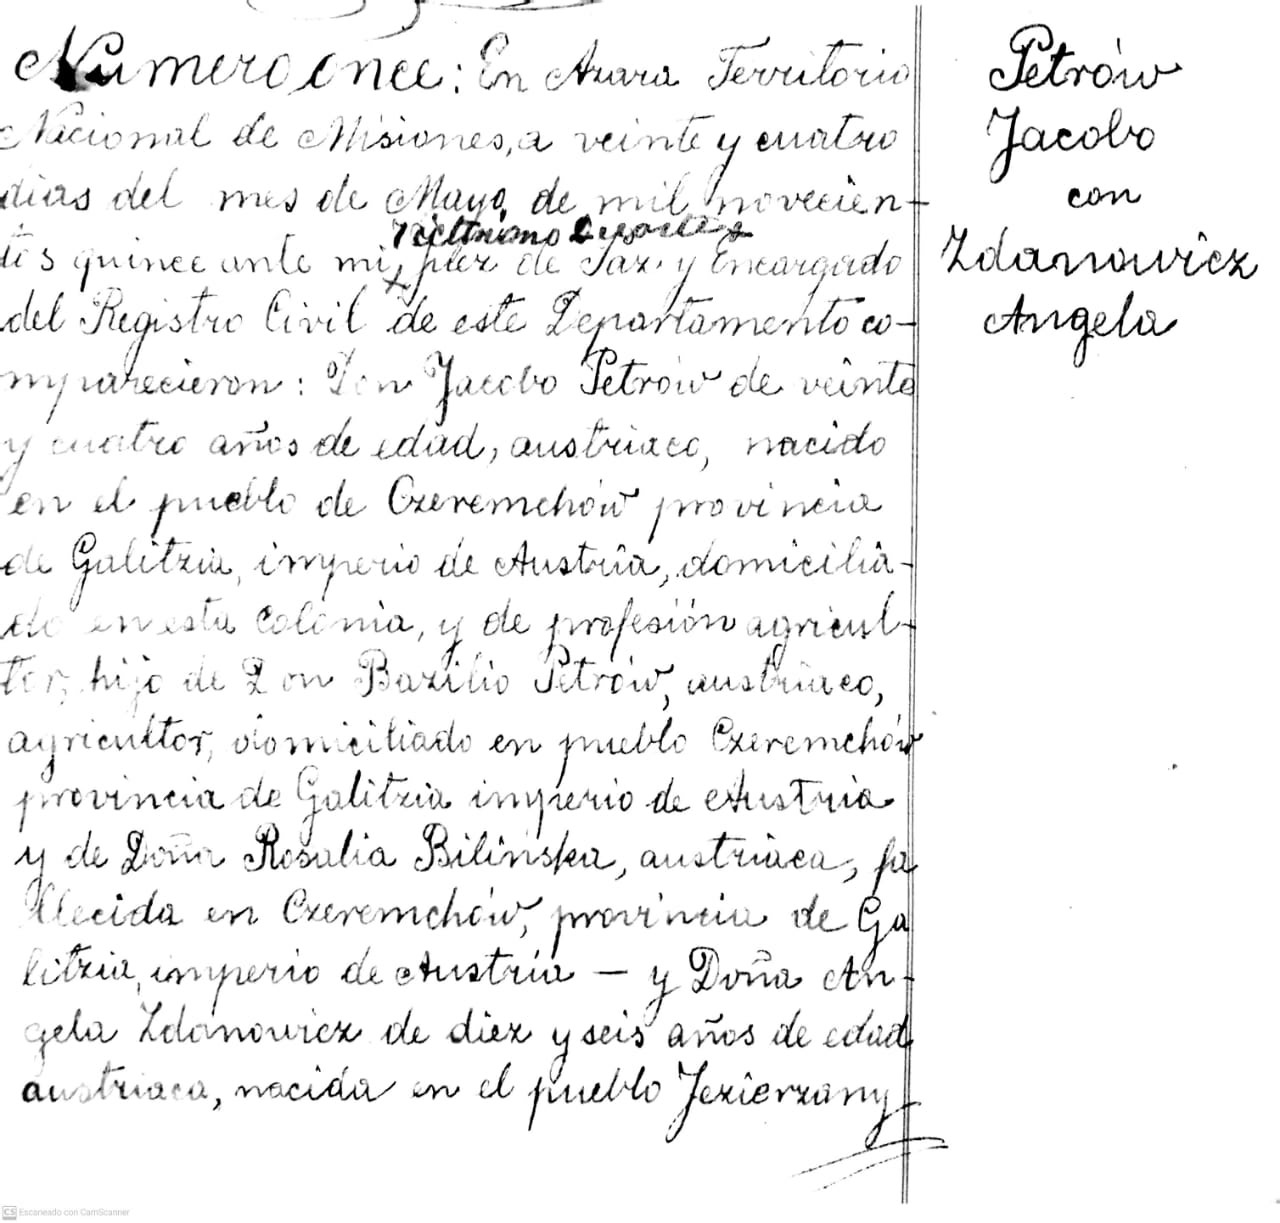 Numero once: En Azara Territorio
Nacional de Misiones, a veinte y cuatro
dias del mes de Mayo, de mil novecien-
tos quince ante mi, juez de Paz y Encargado
del Registro Civil de este Departamento co-
mparecieron: Don Jacobo Petrów de veinte
y cuatro años de edad, austriaco, nacido
en el pueblo de Czeremchów provincia
de Galitzia, imperio de Austria, domicilia-
do en esta Colonia, y de profesión agricul-
tor, hijo de Don Bazilio Petrów, austriaco,
agricultor, domiciliado en pueblo Czeremchów
provincia de Galitzia imperio de Austria
y de Doña Rosalia Bilińska, austriaca, fa
llecida en Czeremchów, provincia de Ga
litzia, imperio de Austria — y Doña An-
gela Zdanowicz de diez y seis años de edad
austriaca, nacida en el pueblo Jezierzany
Petrów
Jacobo
con
Zdanowicz
Angela
CS Escaneado con CamScanner